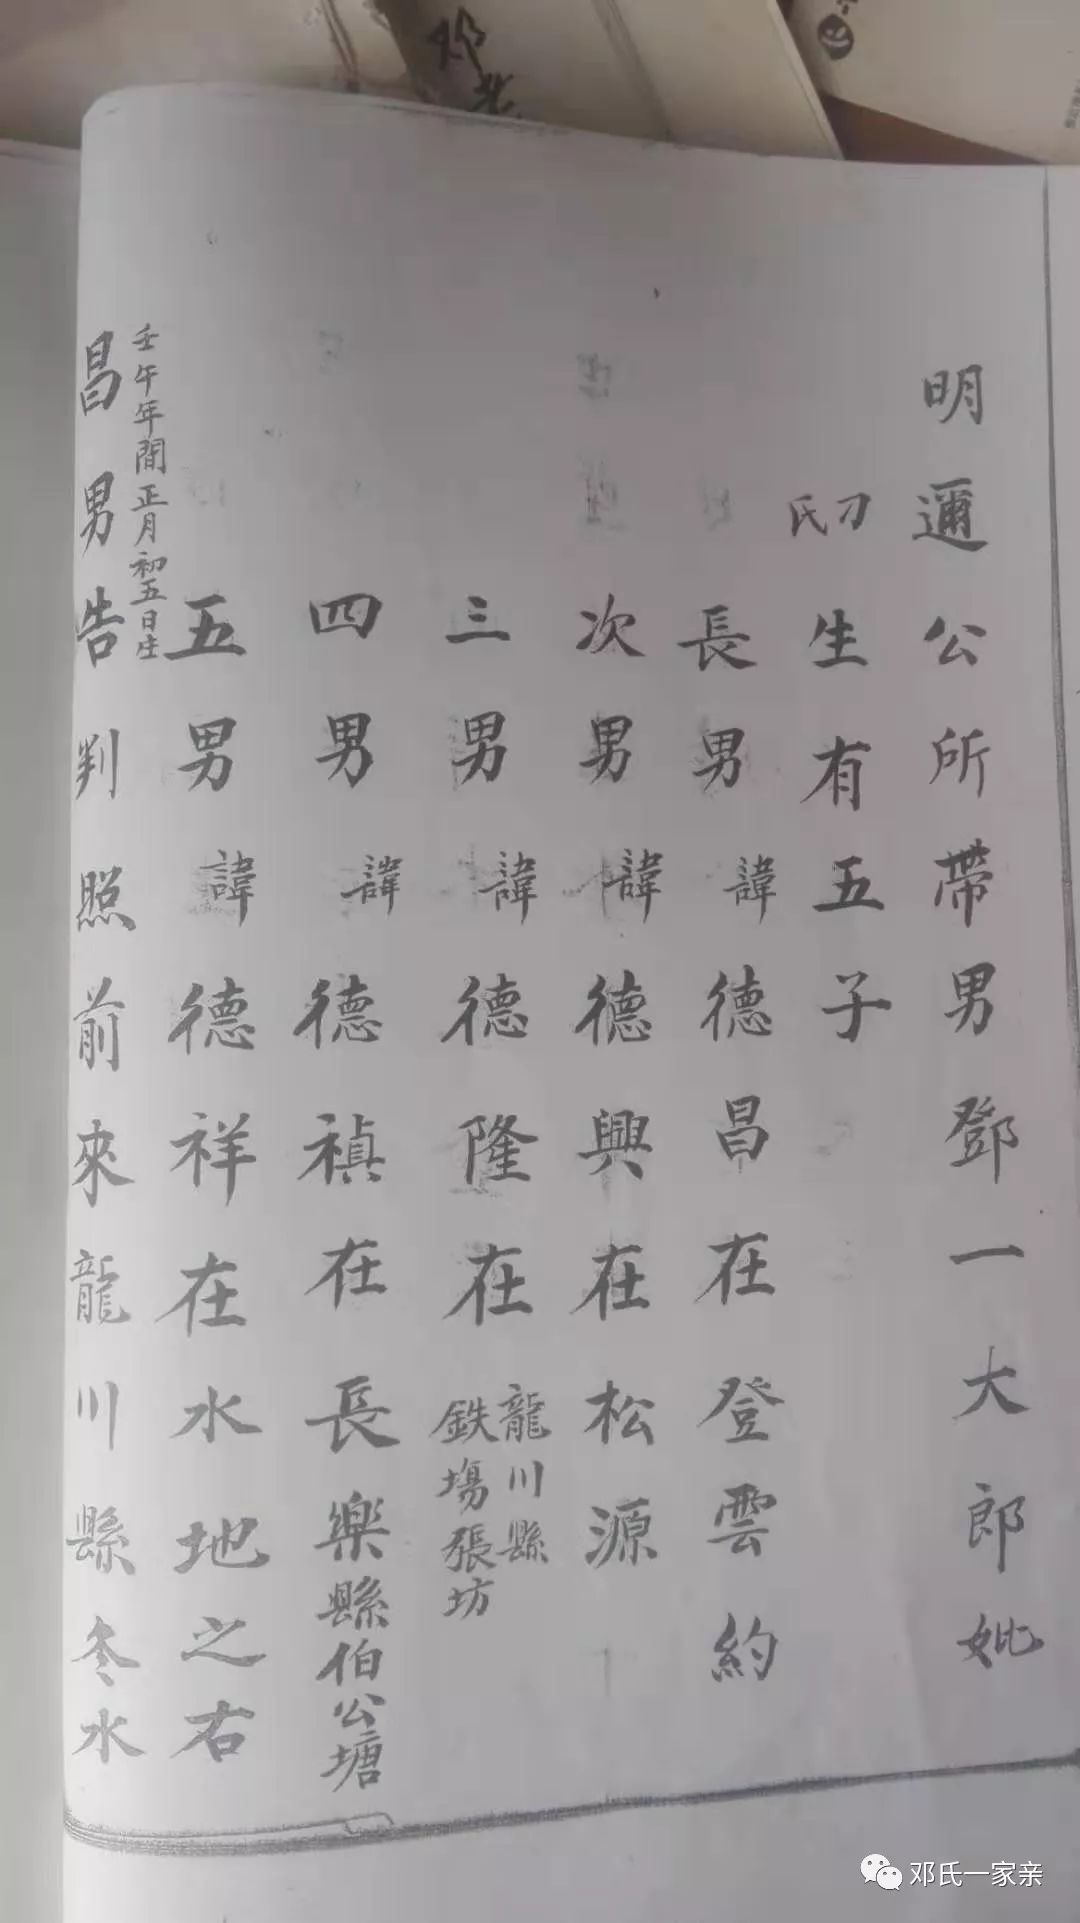 明邇公所帶男鄧一大郎妣
刁氏生有五子
長男諱德昌在登雲約
次男諱德興在松源
三男諱德隆在龍川縣鉄塲張坊
四男諱德禎在長樂縣伯公塘
五男諱德祥在水地之右
壬午年間正月初五日庄
昌男告判照前來龍川縣冬水
邓氏一家亲